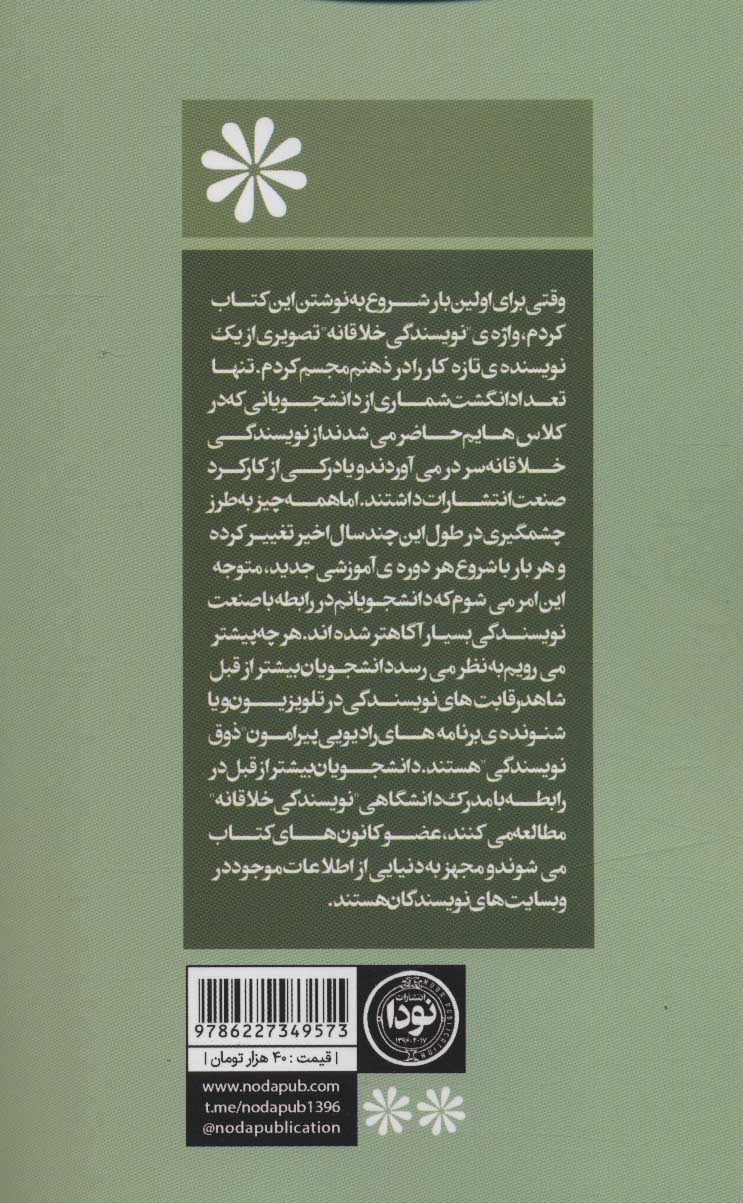 وقتی برای اولین بار شروع به نوشتن این کتاب
کردم، واژه ی "نویسندگی خلاقانه" تصویری از یک
نویسنده ی تازه کار را در ذهنم مجسم کردم. تنها
تعداد انگشت شماری از دانشجویانی که در
کلاس هایم حاضر می شدند از نویسندگی
خلاقانه سر در می آوردند و یا درکی از کارکرد
صنعت انتشارات داشتند. اما همه چیز به طرز
چشمگیری در طول این چند سال اخیر تغییر کرده
و هر بار با شروع هر دوره ی آموزشی جدید، متوجه
این امر می شوم که دانشجویانم در رابطه با صنعت
نویسندگی بسیار آگاهتر شده اند. هر چه پیشتر
می رویم به نظر می رسد دانشجویان بیشتر از قبل
شاهد رقابت های نویسندگی در تلویزیون و یا
شنونده ی برنامه های رادیویی پیرامون "ذوق
نویسندگی" هستند. دانشجویان بیشتر از قبل در
رابطه با مدرک دانشگاهی "نویسندگی خلاقانه"
مطالعه می کنند، عضو کانون های کتاب
می شوند و مجهز به دنیایی از اطلاعات موجود در
وبسایت های نویسندگان هستند.
9786227349573
| قیمت : ۴۰ هزار تومان |
www.nodapub.com
t.me/nodapub1396
@nodapublication
انتشارات
نودا
۱۳۹۶-۲۰۱۷
NODA PUBLICATION